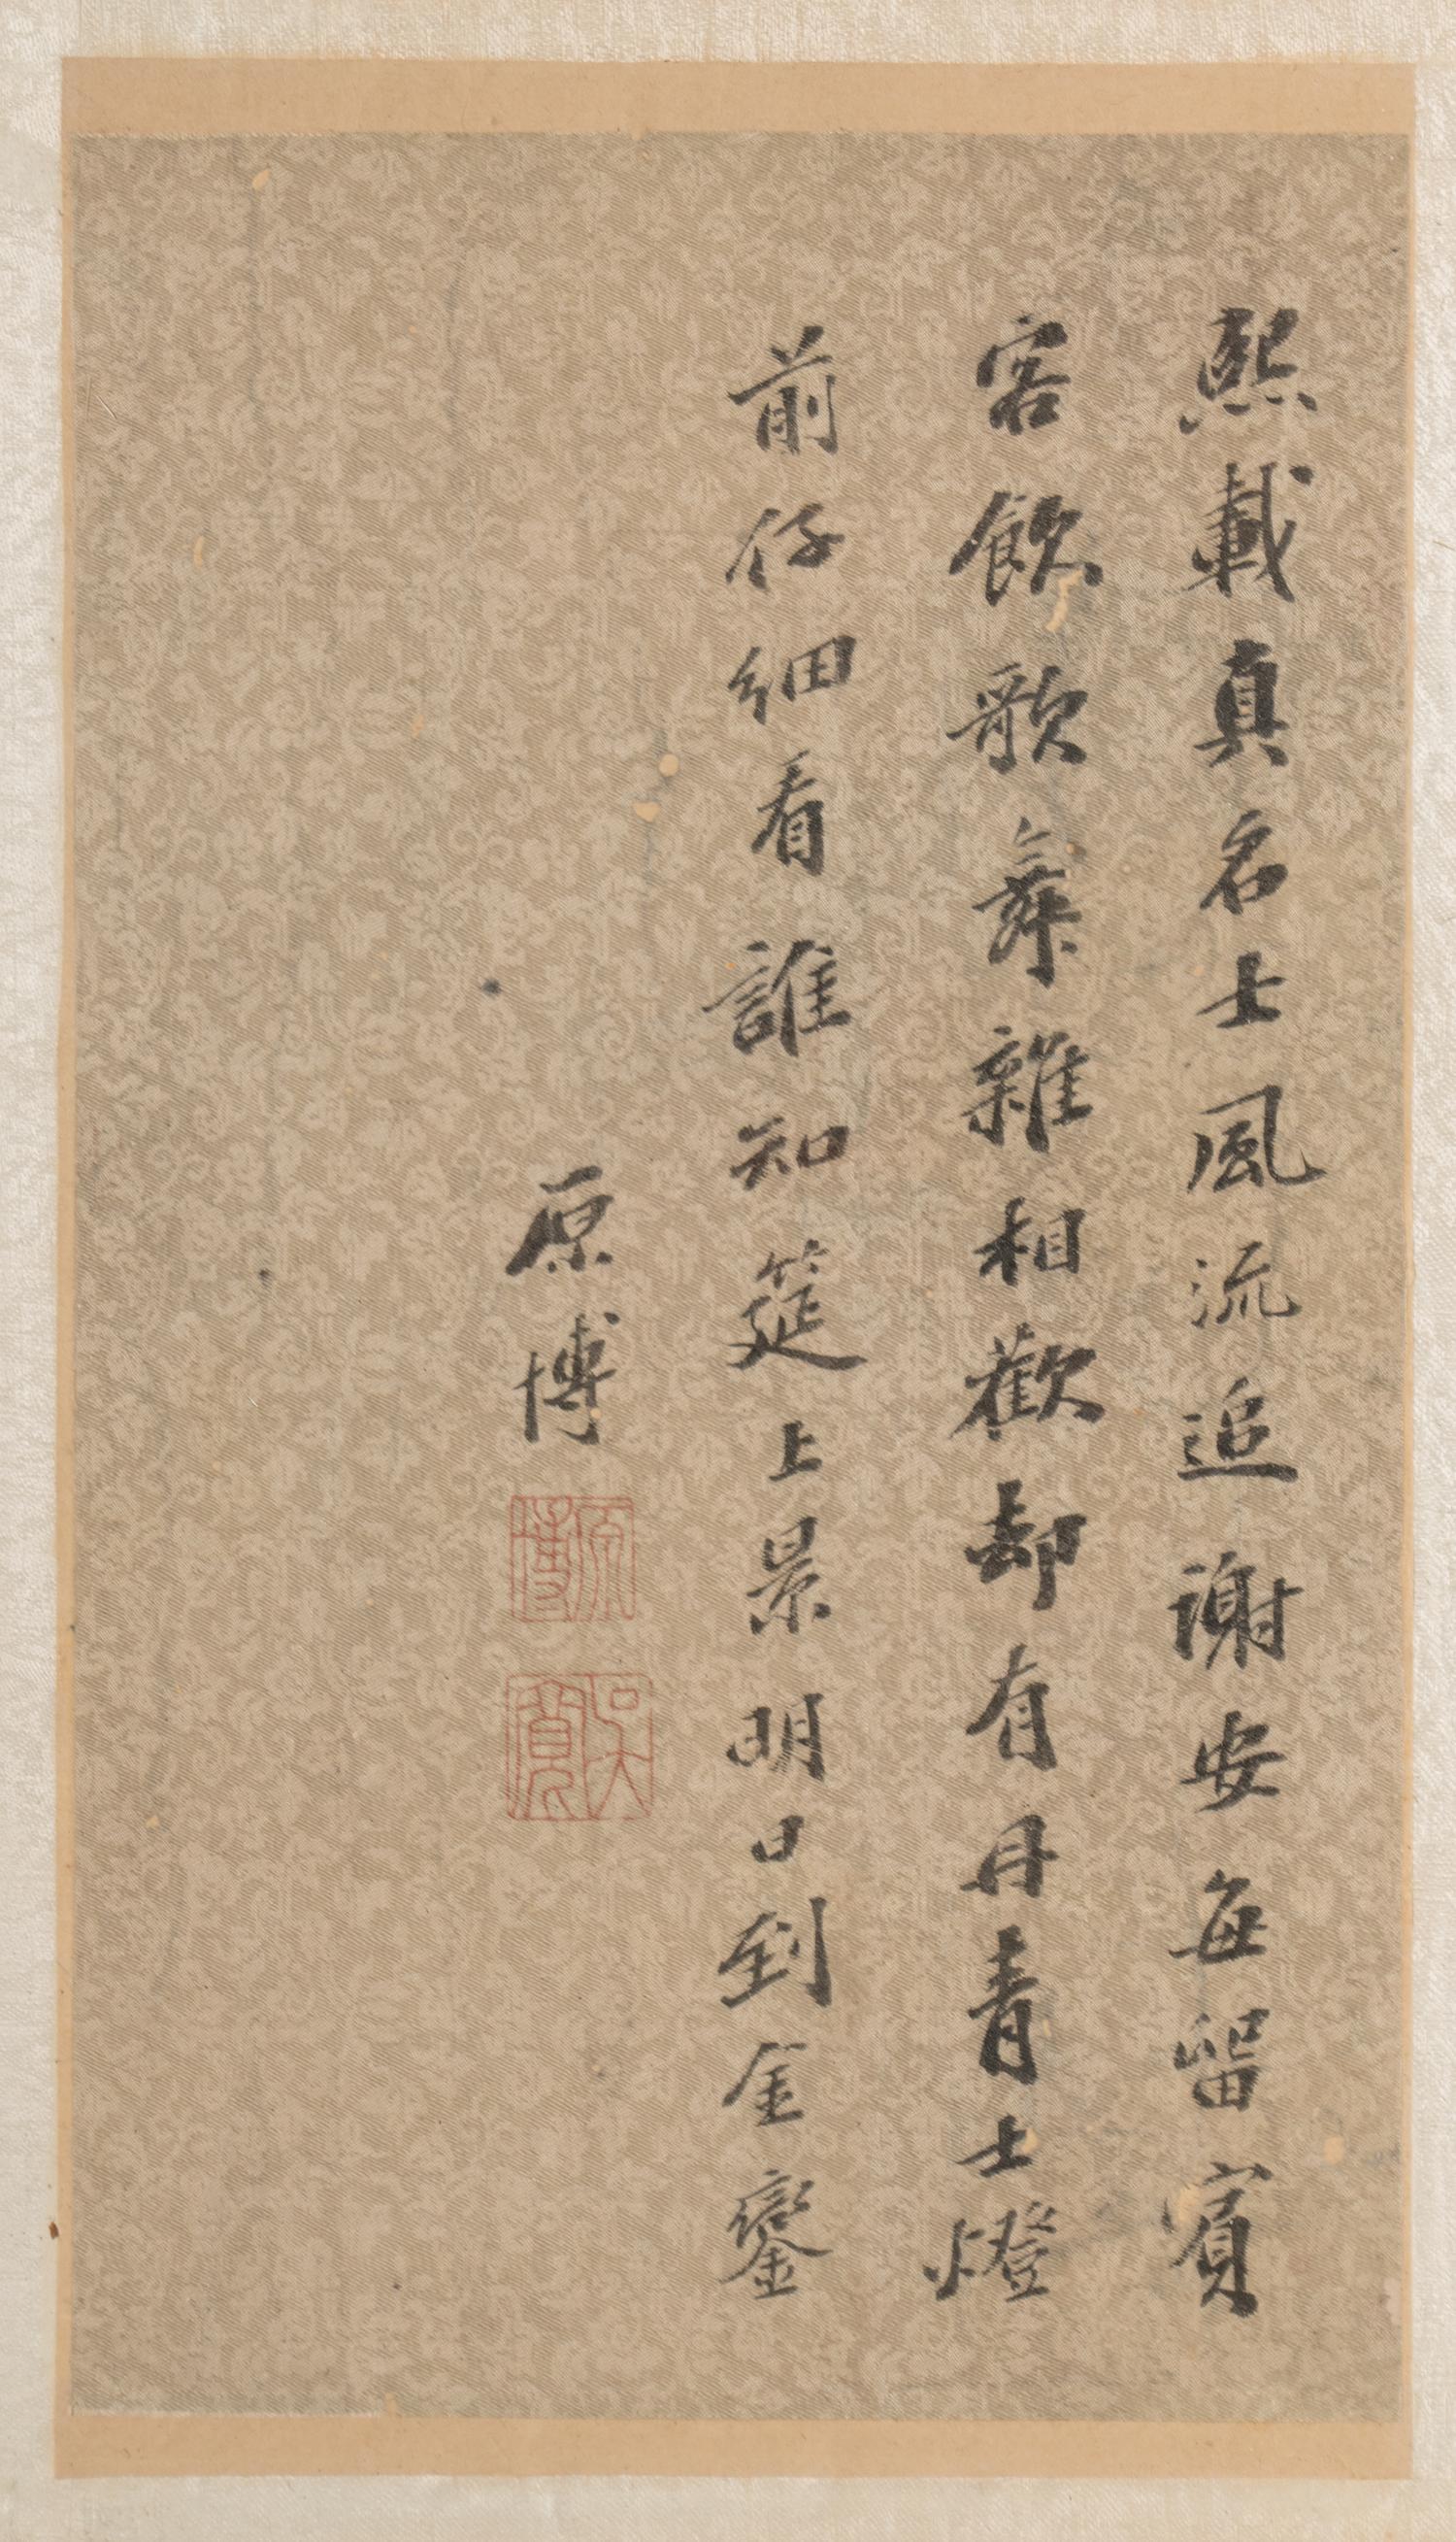 熙載真名士風流追謝安每留賓
客飲歌舞雜相歡却有丹青士燈
前仔細看誰知筵上景明日到金鑾
原博
原博
吳寬